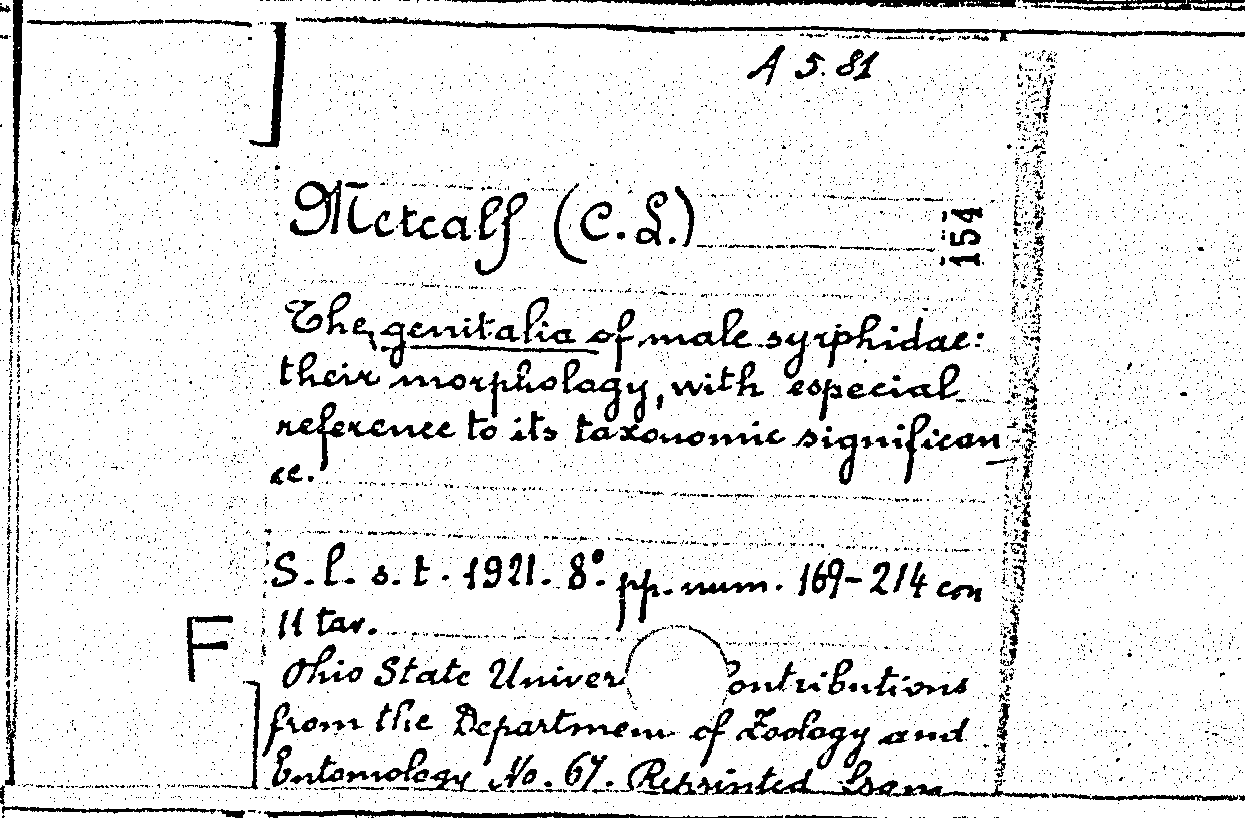 A 5. 81
Metcalf (C. L.)
154
The genitalia of male syrphidae:
their morphology, with especial
reference to its taxonomic significan
ce.
S. l. s. t. 1921. 8°. pp. num. 169-214 con
11 tav.
F
Ohio State Univer ontributions
from the Departmen of Zoology and
Entomology No. 67. Reprinted from